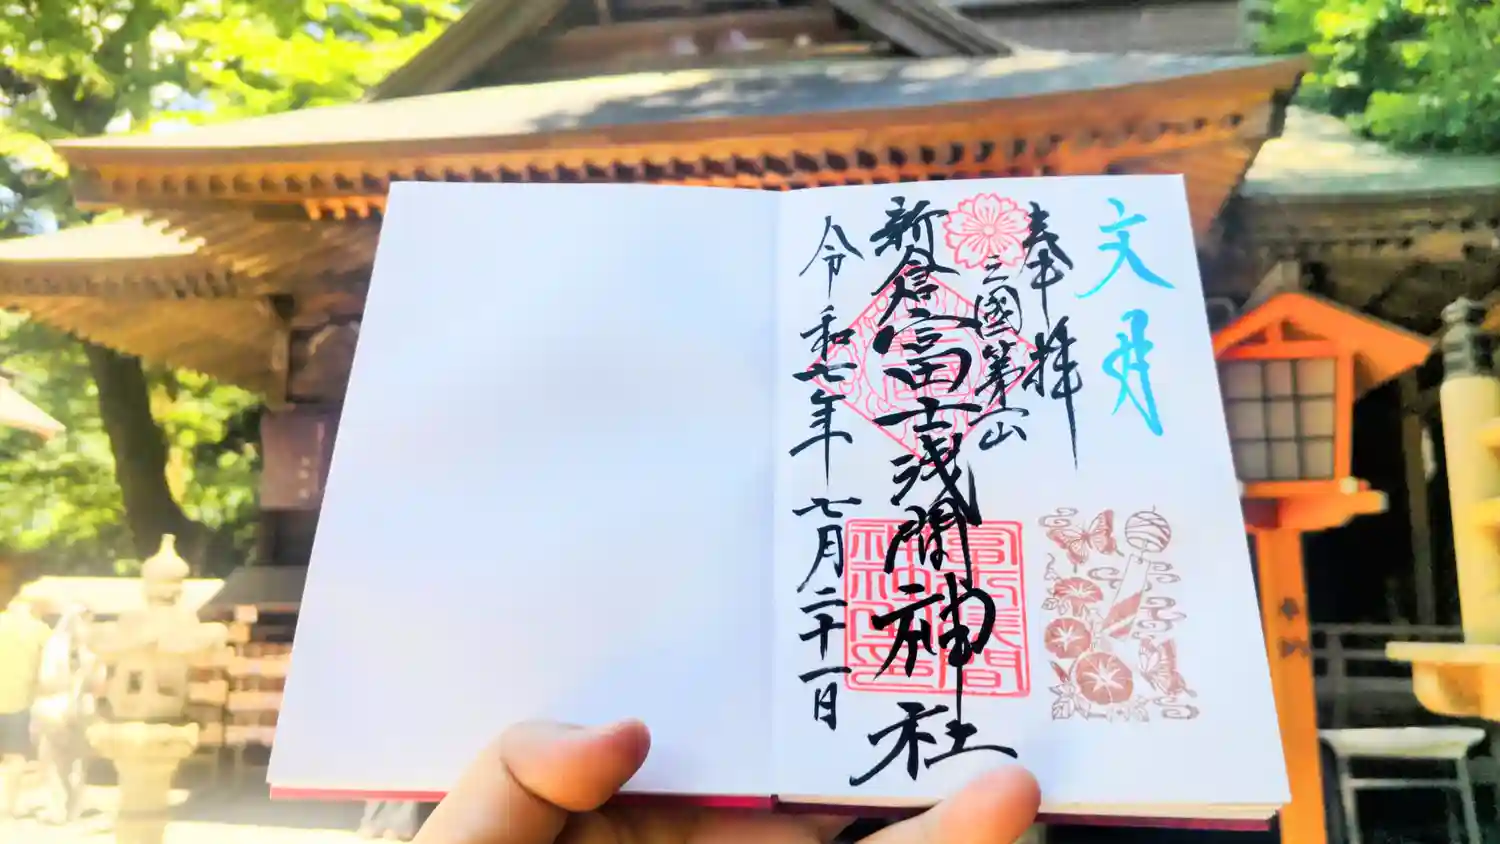 文月
奉拝
三國第一山
新倉富士浅間神社
令和七年七月二十一日